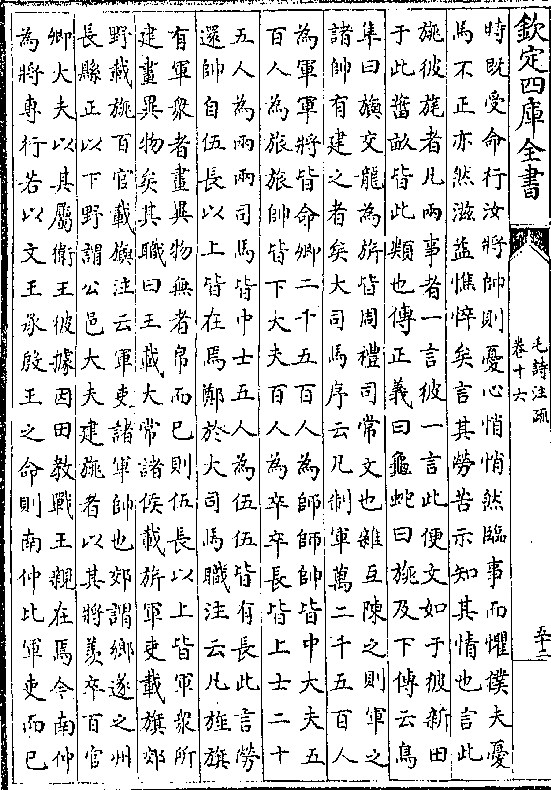 欽定四庫全書
毛詩注疏
卷十六
時既受命行汝將帥則憂心悄悄然臨事而懼僕夫憂
馬不正亦然滋益憔悴矣言其勞苦示知其情也言此
旐彼旄者凡兩事者一言彼一言此便文如于彼新田
于此菑畝皆此類也傳正義曰龜蛇曰旐及下傳云鳥
隼曰旟交龍為旂皆周禮司常文也雜互陳之則軍之
諸帥有建之者矣大司馬序云凡制軍萬二千五百人
為軍軍將皆命卿二千五百人為師師帥皆中大夫五
百人為旅旅帥皆下大夫百人為卒卒長皆上士二十
五人為兩兩司馬皆中士五人為伍伍皆有長此言勞
還帥自伍長以上皆在焉鄭於大司馬職注云凡旌旗
有軍衆者畫異物無者帛而已則伍長以上皆軍衆所
建畫異物矣其職曰王載大常諸侯載旂軍吏載旗郊
野載旐百官載旟注云軍吏諸軍帥也郊謂鄉遂之州
長縣正以下野謂公邑大夫建旐者以其將羨卒百官
卿大夫以其屬衛王彼據因田教戰王親在焉今南仲
為將專行若以文王承殷王之命則南仲比軍吏而已